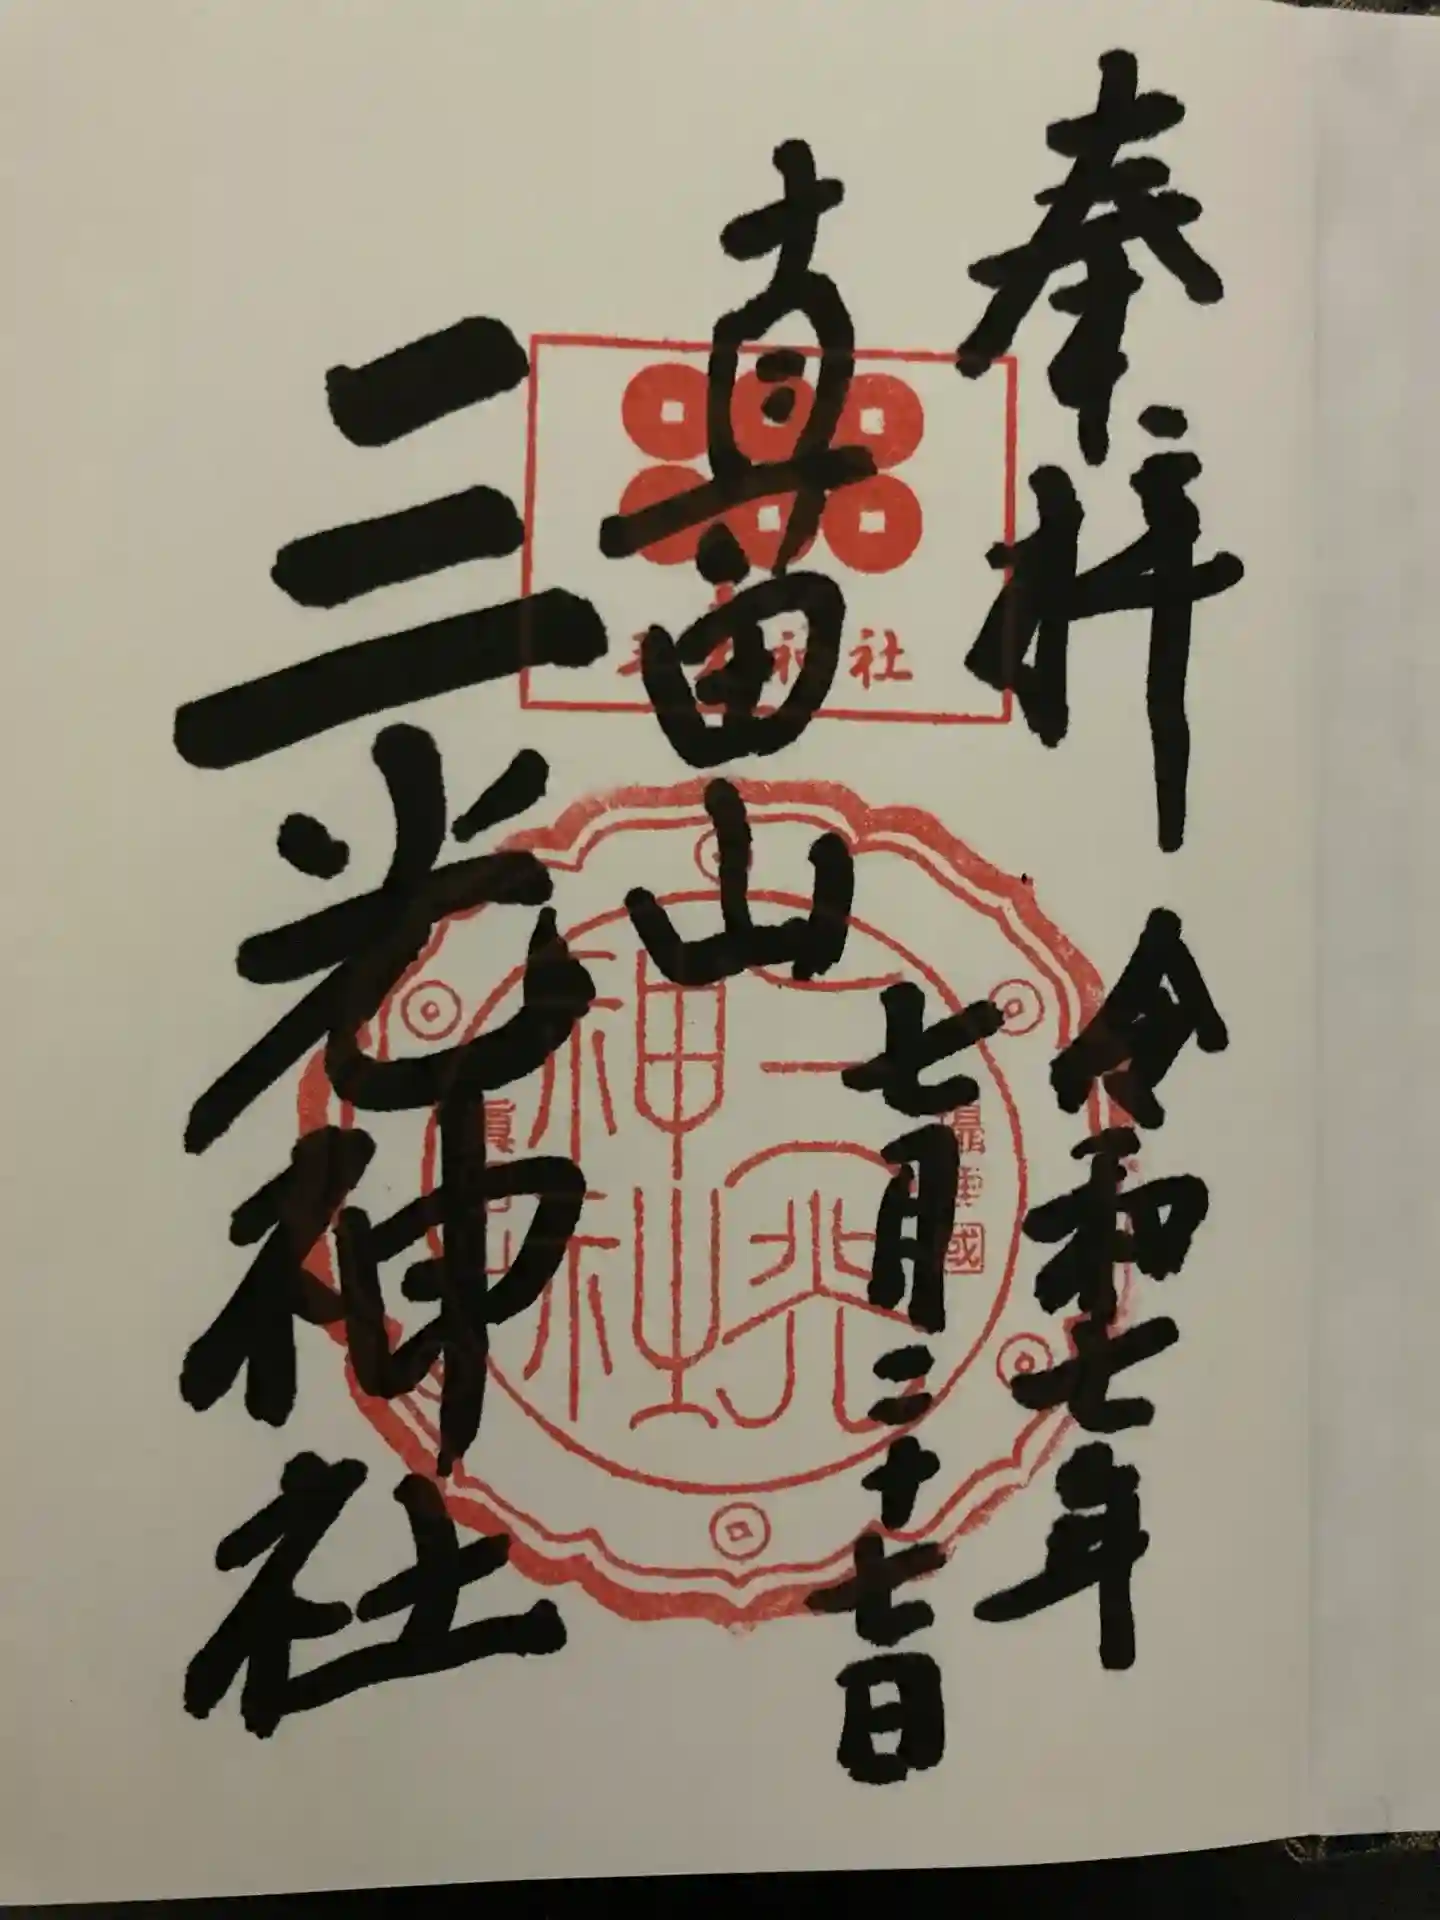 奉拝
令和七年
七月二十七日
真田山
三光神社
三光神社
三光神社
攝津國
真田山